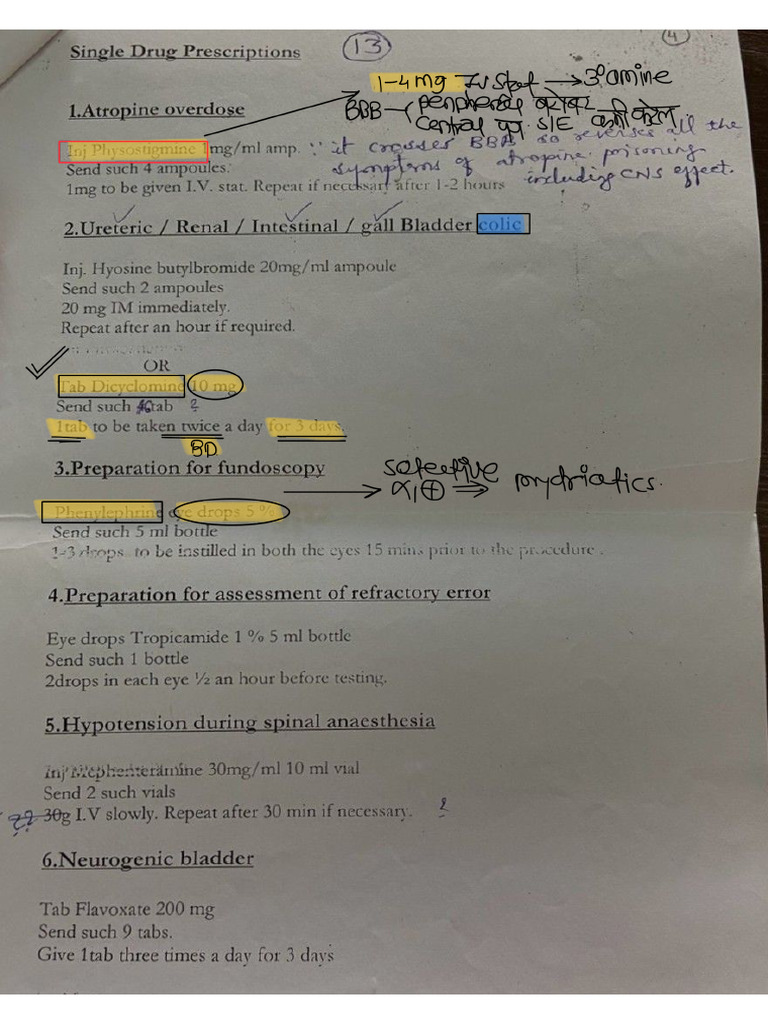 Single Drug Prescriptions
13
4
1-4 mg IV stat → 3° amine
1.Atropine overdose
BBB
peripheral
central का S/E
Inj Physostigmine 1mg/ml amp. ∵ it crosses BBB so reverses all the
Send such 4 ampoules. symptoms of atropine poisoning
1mg to be given I.V. stat. Repeat if necessary after 1-2 hours including CNS effect.
2.Ureteric / Renal / Intestinal / gall Bladder colic
Inj. Hyosine butylbromide 20mg/ml ampoule
Send such 2 ampoules
20 mg IM immediately.
Repeat after an hour if required.
OR
Tab Dicyclomine 10 mg
Send such tab ?
1tab to be taken twice a day for 3 days.
BD
3.Preparation for fundoscopy
selective
α₁ ⊕ ⇒ mydriatics.
Phenylephrine eye drops 5 %
Send such 5 ml bottle
1-3 drops to be instilled in both the eyes 15 mins prior to the procedure .
4.Preparation for assessment of refractory error
Eye drops Tropicamide 1 % 5 ml bottle
Send such 1 bottle
2drops in each eye ½ an hour before testing.
5.Hypotension during spinal anaesthesia
Inj Mephenteramine 30mg/ml 10 ml vial
Send 2 such vials
?? 30g I.V slowly. Repeat after 30 min if necessary. ?
6.Neurogenic bladder
Tab Flavoxate 200 mg
Send such 9 tabs.
Give 1tab three times a day for 3 days